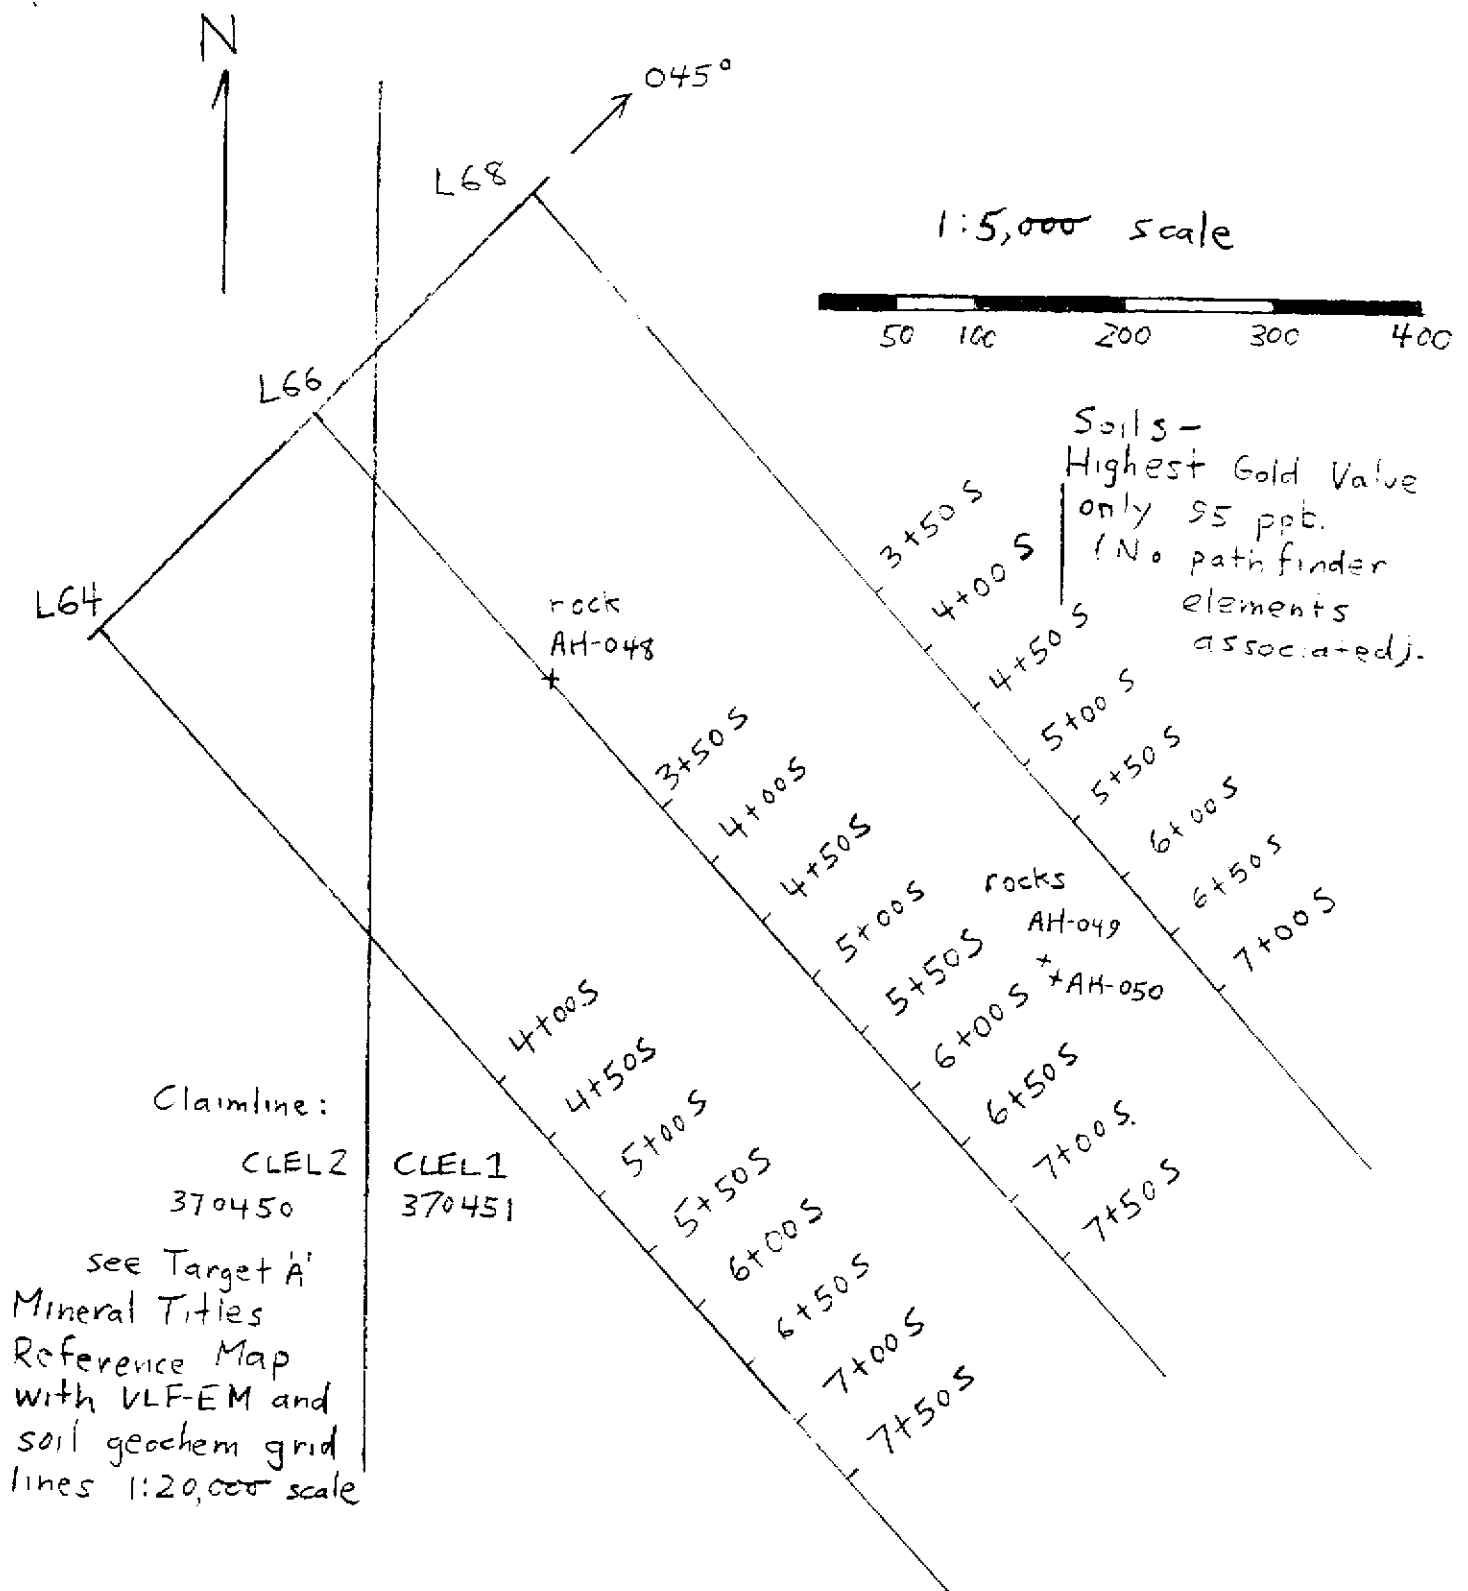 N
045°
L68
1:5,000 scale
50 100 200 300 400
L66
Soils -
Highest Gold Value
only 95 ppb.
(No pathfinder
elements
associated).
3+50 S
4+00 S
4+50 S
5+00 S
5+50 S
6+00 S
6+50 S
7+00 S
L64
rock
AH-048
3+50S
4+00S
4+50S
5+00S
5+50S
6+00S
6+50S
7+00S.
7+50S
rocks
AH-049
AH-050
4+00S
4+50S
5+00S
5+50S
6+00S
6+50S
7+00S
7+50S
Claimline:
CLEL2 CLEL1
370450 370451
see Target 'A'
Mineral Titles
Reference Map
with VLF-EM and
soil geochem grid
lines 1:20,000 scale